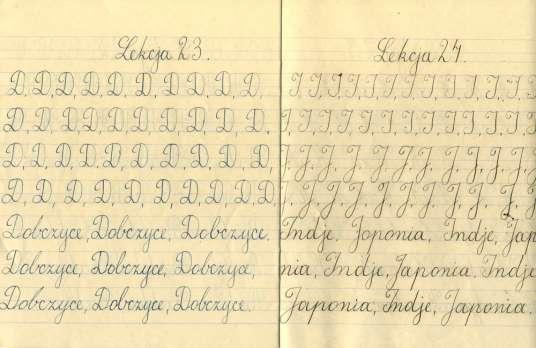 Lekcja 23.
D, D, D, D, D, D, D, D, D, D,
D, D, D, D, D, D, D, D, D, D,
D, D, D, D, D, D, D, D, D, D,
D, D, D, D, D, D, D, D, D, D
Dobczyce, Dobczyce, Dobczyce,
Dobczyce, Dobczyce, Dobczyce,
Dobczyce, Dobczyce, Dobczyce.
Lekcja 24.
I, I, I, I, I, I, I, I, I, I, I, I
I, I, I, I, I, I, I, I, I, I, I, I
J, J, J, J, J, J, J, J, J, J, J,
J, J, J, J, J, J, J, J, J, J, J
Indje, Japonia, Indje, Jap
nia, Indje, Japonia, Indje
Japonia, Indje, Japonia.